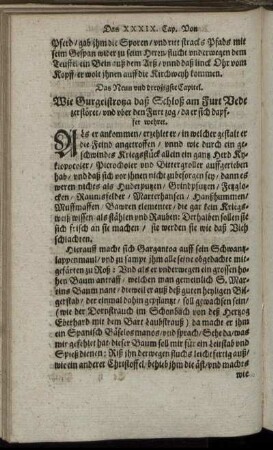 Das XXXIX. Cap. Von
Pferd, gab jhm die Sporen, vnd ritt stracks Pfads mit
seim Gespan wider zu seim Herrn, flucht vnderwegen dem
Teuffel ein Bein auß dem Arß, vnnd daß linck Ohr vom
Kopff: er wolt jhnen auff die Kirchweyh kommen.
Das Neun vnd dreyssigste Capitel.
Wie Gurgelstrotza daß Schloß am Furt Vede
zerstöret, vnd vber den Furt zog, da er sich dapf-
fer wehret.
Als er ankommen, erzehlet er, in welcher gestalt er
die Feind angetroffen, vnnd wie durch ein ge-
schwindes Kriegsstück allein ein gantz Herd
vnd Vierergroller auffgerieben
hab, vnd daß sich vor jhnen nicht zubesorgen sey, dann es
weren nichts als Huderputzen, Grindpfutzen, Fetzglo-
cken, Raumsfelder, Marterhansen, Hanßhummen,
Mußmaffen, Bawren elementer, die als kein Kriegs-
wiß wissen, als stählen vnd Rauben: Derhalben sollen sie
sich frisch an sie machen, sie werden sie wie daß Vieh
schlachten.
Hierauff macht sich Gargantoa auff sein Schwantz-
lappenmaul, vnd zu sampt jhm alle seine obgedachte mit-
gefärten zu Roß: Vnd als er vnderwegen ein grossen ho-
hen Baum antraff, welchen man gemeinlich S. Mar-
tins Baum nant, dieweil er auß deß guten heyligen Bil-
gerstab, der einmal dohin gepflantzt, soll gewachsen sein,
wie der Dornstrauch im Schonbüch von deß Hertzog
Eberhard mit dem Bart daubstrauß) da macht er jhm
ein Spanisch Bäselos manos, vnd sprach, Seheda, was
wir gefehlet hat: dieser Baum soll mir für ein leitstab vnd
Spieß dienen: Riß jhn derwegen flucks leichtfertig auß,
wie ein anderer Christoffel, behieb jhm die äst, vnd machts
wie